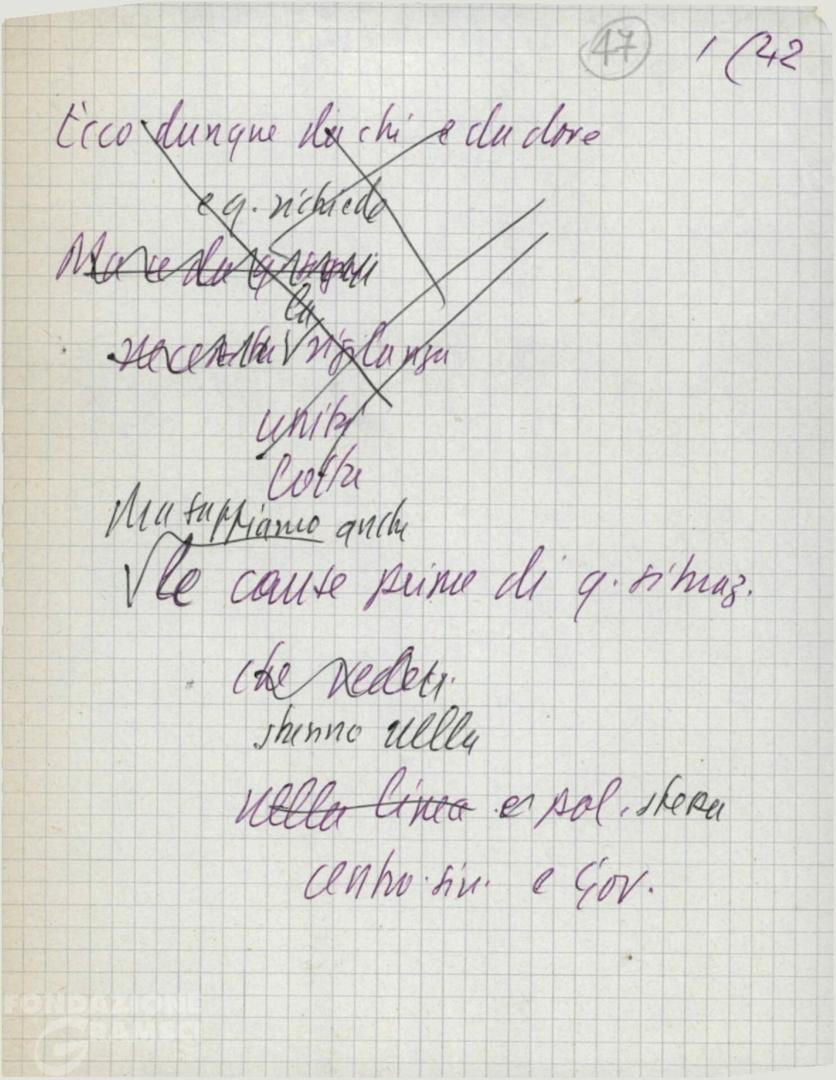 47 1(42
Ecco dunque da chi e da dove
e q. richiede
Ma e da q.
necessità la vigilanza
unità
lotta
Ma sappiamo anche
le cause prime di q. situaz.
che vedeti.
stanno nella
nella linea e pol. stessa
centro-sin. e Gov.
FONDAZIONE
GRAMSCI